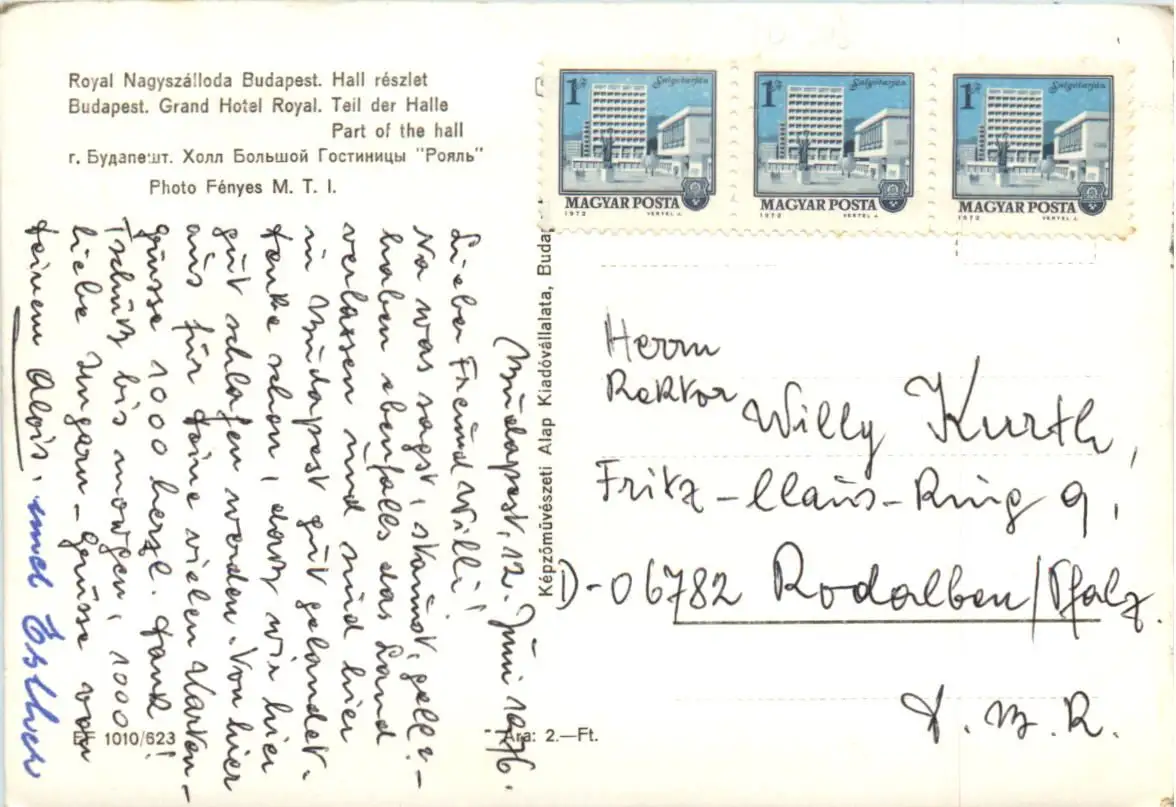 Royal Nagyszálloda Budapest. Hall részlet
Budapest. Grand Hotel Royal. Teil der Halle
Part of the hall
г. Будапешт. Холл Большой Гостиницы "Рояль"
Photo Fényes M. T. I.
Budapest, 12. Juni 1976.
Lieber Freund Willi!
Na was sagst, staunst, gell? –
haben ebenfalls das Land
verlassen und sind hier
in Budapest gut gelandet.
denke schon, dass wir hier
gut schlafen werden. Von hier
aus für deine vielen Karten-
grüsse 1000 herzl. Dank!
Tschüss bis morgen, 1000
liebe Ungarn-grüsse von
deinem Alois. und Esther
EK 1010/623
Ára: 2.—Ft.
Képzőművészeti Alap Kiadóvállalata, Budap
1 Ft
Salgótarján
MAGYAR POSTA
1972 VERTEL J.
1 Ft
Salgótarján
MAGYAR POSTA
1972 VERTEL J.
1 Ft
Salgótarján
MAGYAR POSTA
1972 VERTEL J.
Herrn
Rektor Willy Kurth,
Fritz-Claus-Ring 9,
D-06782 Rodalben/Pfalz.
D.B.R.